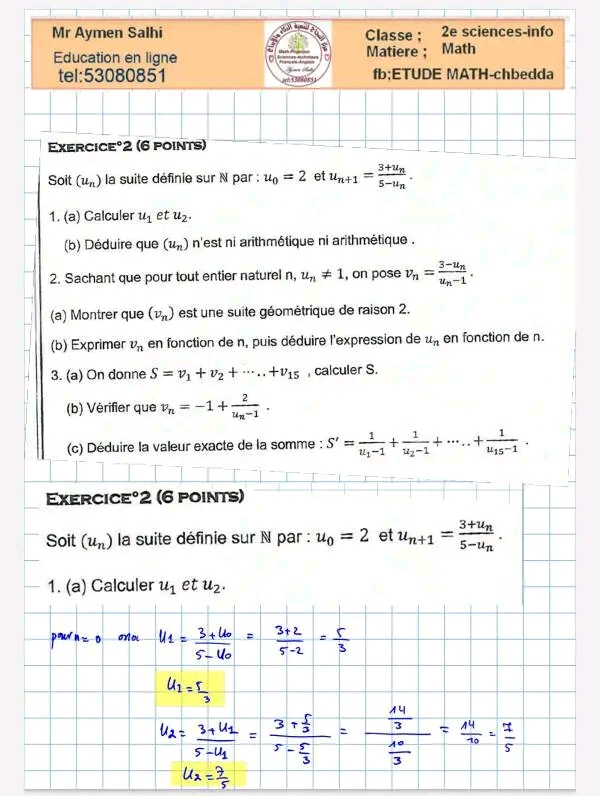 Mr Aymen Salhi
Education en ligne
tel:53080851
Classe ; 2e sciences-info
Matiere ; Math
fb;ETUDE MATH-chbedda
Aymen Salhi
tel:53080851
EXERCICE°2 (6 POINTS)
Soit (uₙ) la suite définie sur ℕ par : u₀ = 2 et uₙ₊₁ = (3+uₙ)/(5−uₙ) .
1. (a) Calculer u₁ et u₂.
(b) Déduire que (uₙ) n'est ni arithmétique ni arithmétique .
2. Sachant que pour tout entier naturel n, uₙ ≠ 1, on pose vₙ = (3−uₙ)/(uₙ−1) .
(a) Montrer que (vₙ) est une suite géométrique de raison 2.
(b) Exprimer vₙ en fonction de n, puis déduire l'expression de uₙ en fonction de n.
3. (a) On donne S = v₁ + v₂ + ⋯ . . +v₁₅ , calculer S.
(b) Vérifier que vₙ = −1 + 2/(uₙ−1) .
(c) Déduire la valeur exacte de la somme : S′ = 1/(u₁−1) + 1/(u₂−1) + ⋯ . . + 1/(u₁₅−1) .
EXERCICE°2 (6 POINTS)
Soit (uₙ) la suite définie sur ℕ par : u₀ = 2 et uₙ₊₁ = (3+uₙ)/(5−uₙ) .
1. (a) Calculer u₁ et u₂.
pour n = 0 on a U1 = (3+U0)/(5−U0) = (3+2)/(5−2) = 5/3
U1 = 5/3
U2 = (3+U1)/(5−U1) = (3+5/3)/(5−5/3) = (14/3)/(10/3) = 14/10 = 7/5
U2 = 7/5